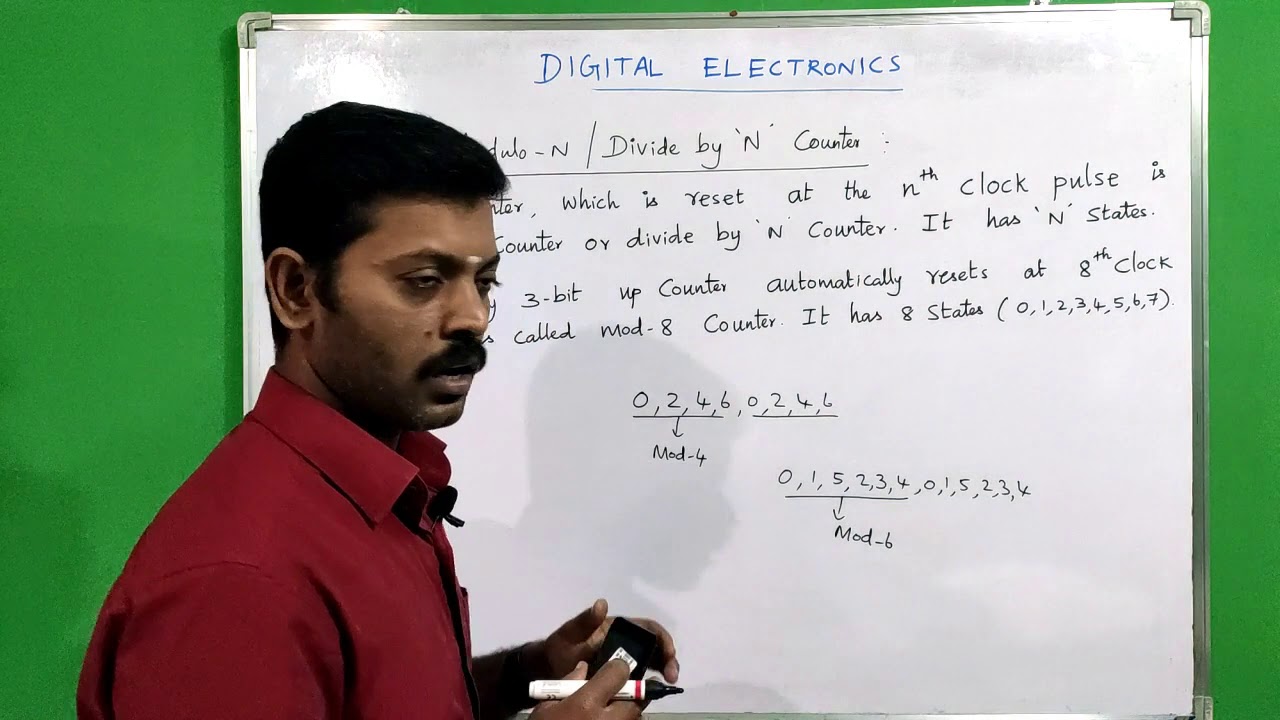 DIGITAL ELECTRONICS
dulo-N / Divide by 'N' Counter :
nter, which is reset at the nth clock pulse is
Counter or divide by 'N' Counter. It has 'N' States.
y 3-bit up Counter automatically resets at 8th Clock
s called mod-8 Counter. It has 8 States (0,1,2,3,4,5,6,7).
0,2,4,6,0,2,4,6
Mod-4
0,1,5,2,3,4,0,1,5,2,3,4
Mod-6